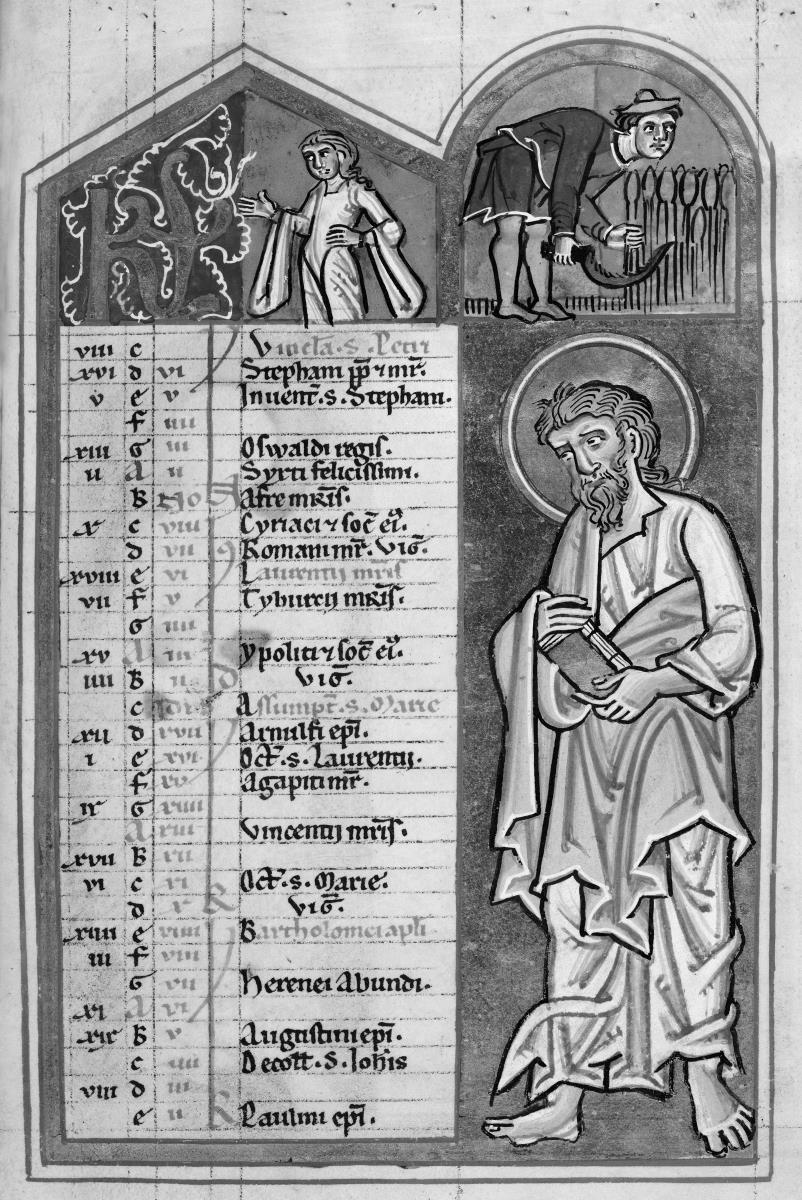 KL
viii c Vincla . s . Petri
xvi d vi Stephani pp̄ ⁊ mr̄.
v e v Inuent̄ . s . Stephani .
f iiii
xiii G iii Oswaldi regis .
ii A ii Syxti felicissimi .
B NO Afre mr̄is .
x c viii Cyriaci ⁊ soc̄ ei᷒ .
d vii Romani mr̄ . viḡ .
xviii e vi Laurentij mr̄is
vii f v Tyburcij mr̄is .
G iiii
xv A iii ypoliti ⁊ soc̄ ei᷒ .
iiii B ii viḡ .
c Assumpt̄ . s . Marie
xii d xvii Arnulfi ep̄i .
i e xvi Oct̄ . s . Laurentij .
f xv Agapiti mr̄ .
ix G xiiii
A xiii Vincentij mr̄is .
xvii B xii
vi c xi Oct̄ . s . Marie .
d x viḡ .
xiiii e viiii Bartholomei apl̄i
iii f viii
G vii herenei Abundi .
xi A vi
xix B v Augustini ep̄i .
c iiii Decoll̄ . s . Ioh̄is
viii d iii
e ii Paulini ep̄i .